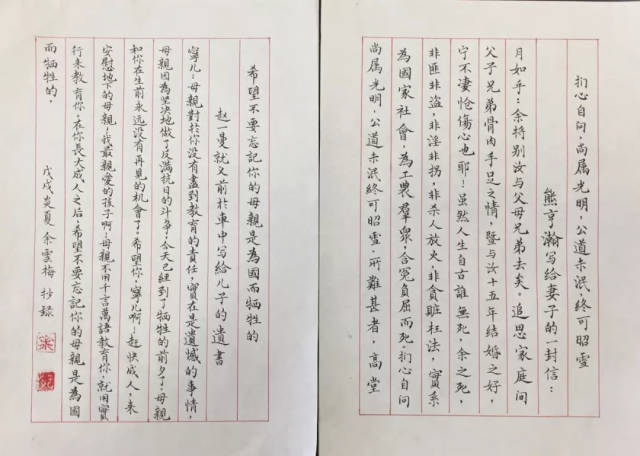 扪心自问,尚属光明,公道未泯終可昭雪
熊亨瀚写給妻子的一封信:
月如乎:余特别汝与父母兄弟去矣。追思家庭间
父子兄弟骨肉手足之情,暨与汝十五年结婚之好,
宁不凄怆傷心也耶!雖然人生自古誰無死,余之死,
非匪非盗,非淫非拐,非杀人放火非贪赃枉法,實系
為國家社會,為工農羣衆,含冤負屈而死。扪心自问
尚属光明,公道未泯終可昭雪。所難甚者,高堂
希望不要忘記你的母亲是為國而牺牲的
赵一曼就义前於車中写給儿子的遗書
寧儿:母親對於你没有盡到教育的責任,實在是遗憾的事情,
母親因為坚决地做了反满抗日的斗争,今天已經到了牺牲的前夕了,母親
和你在生前永远没有再見的机會了。希望你,寧儿啊!赶快成人,来
安慰地下的母親!我最親愛的孩子啊!母親不用千言萬語教育你,就用實
行来教育你。在你長大成人之后,希望不要忘記你的母親是為國
而牺牲的。
戊戌炎夏 余雲梅 抄録